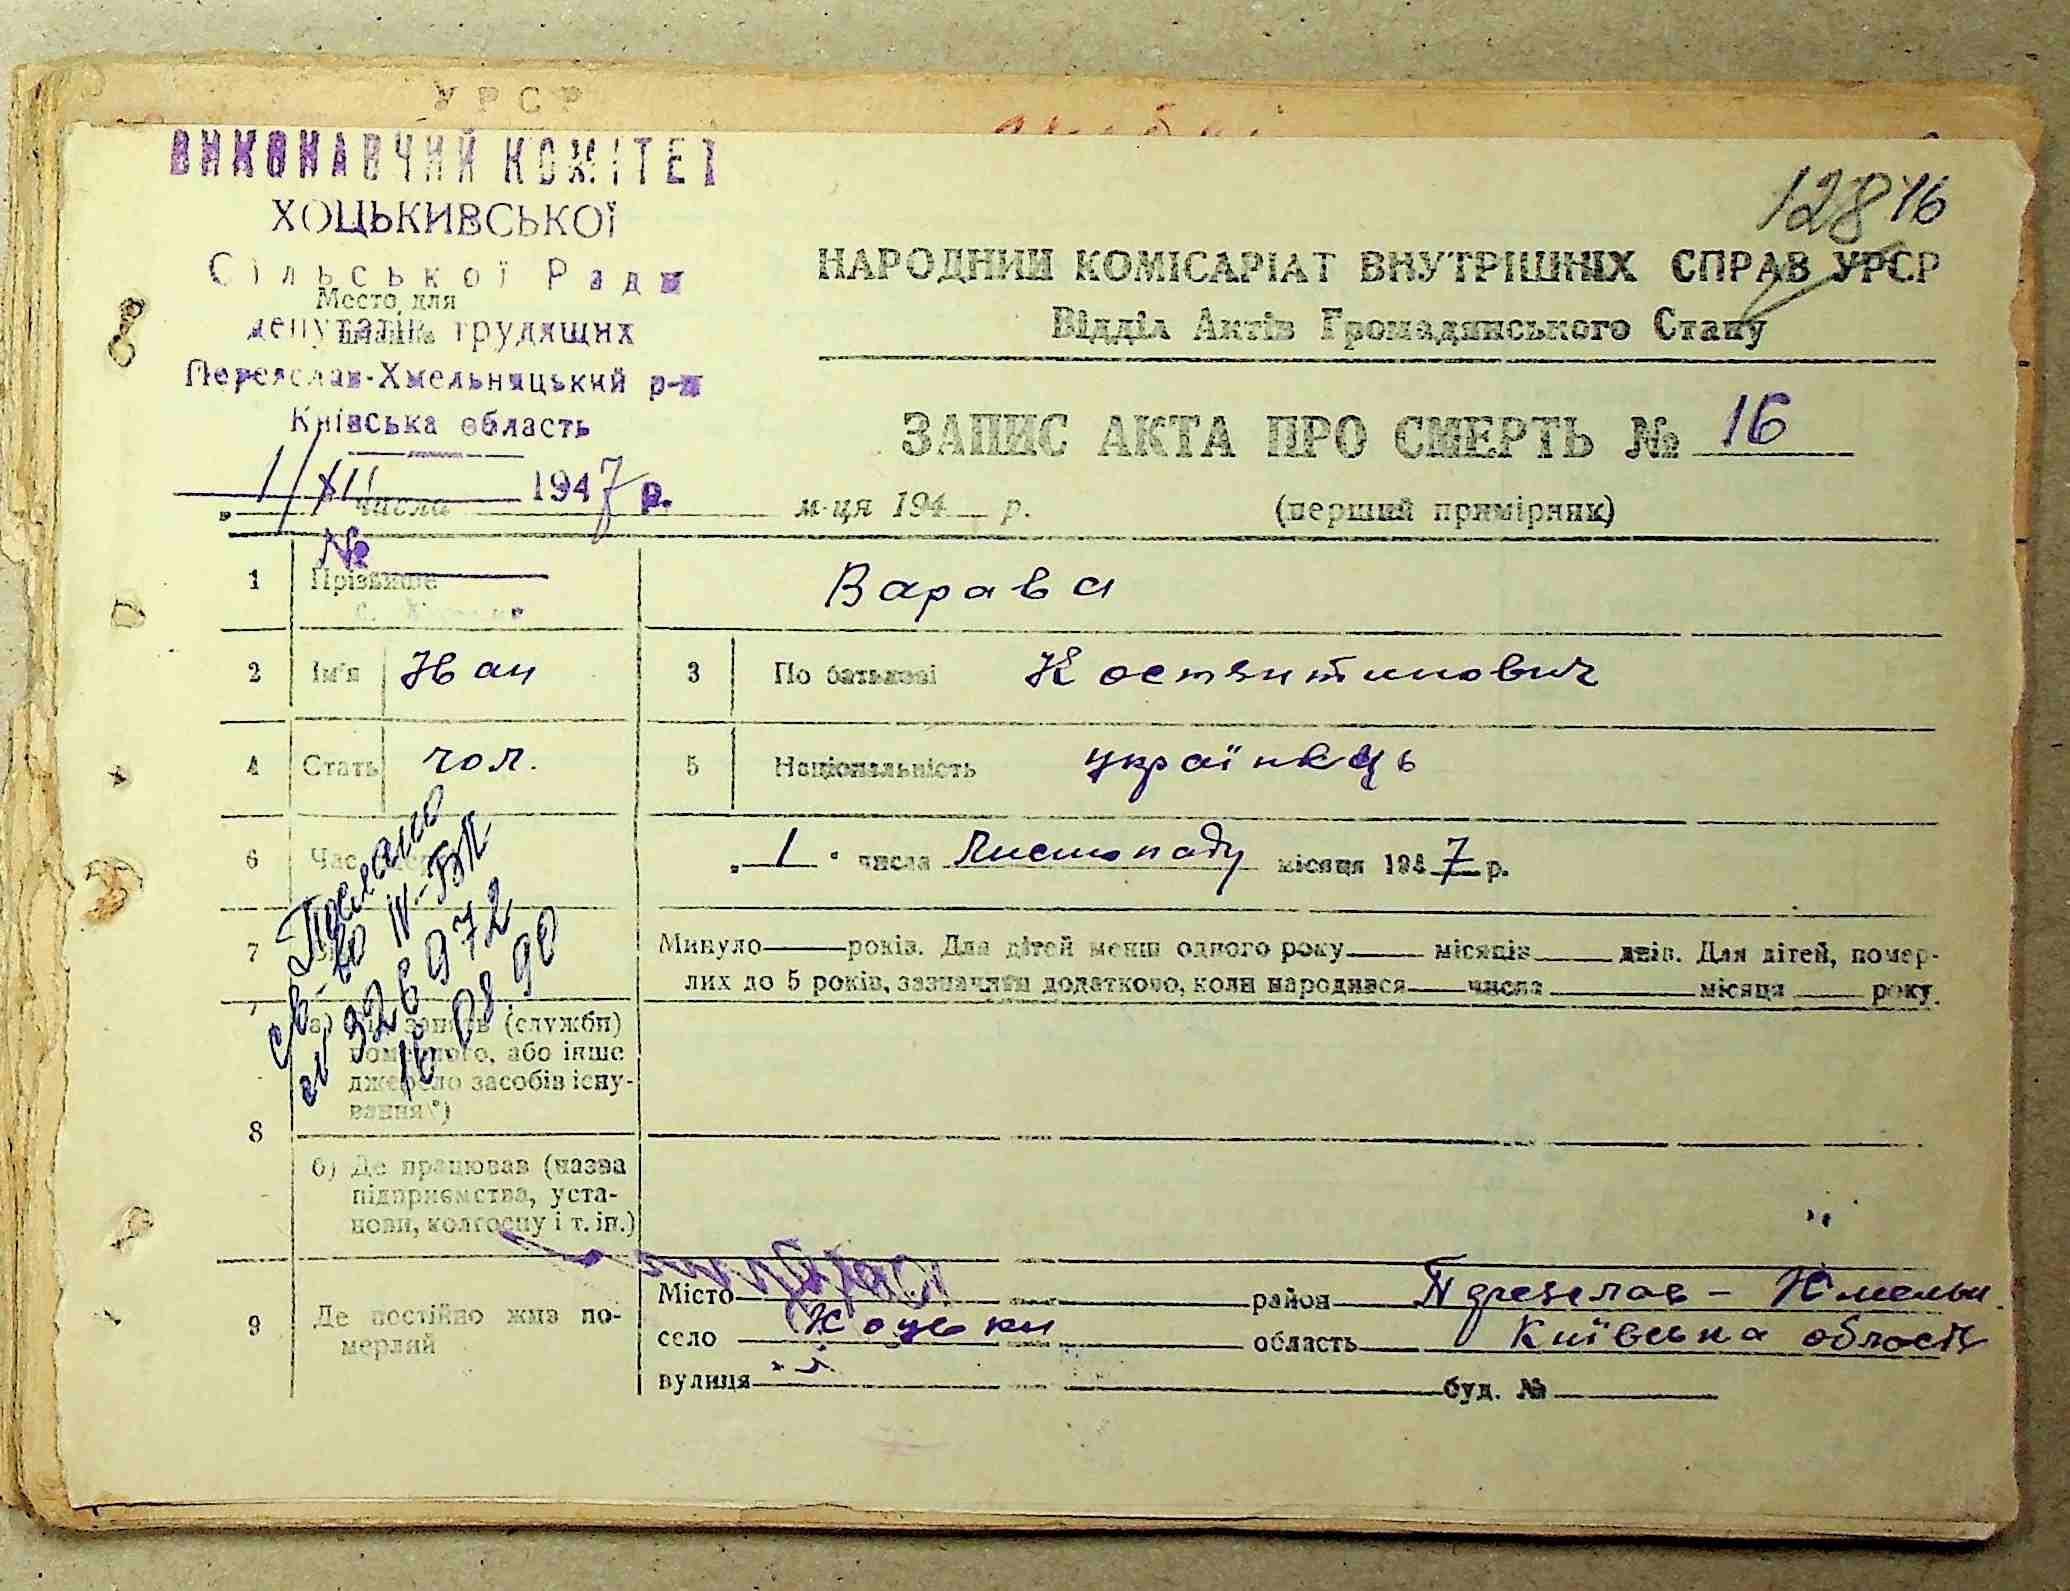 УРСР
ВИКОНАВЧИЙ КОМІТЕТ
ХОЦЬКИВСЬКОЇ
Сільської Ради
Место для
депутатів трудящих
Переяслав-Хмельницький р-н
Київська область
1/XII 1947 р.
№
128 16
НАРОДНИЙ КОМІСАРІАТ ВНУТРІШНІХ СПРАВ УРСР
Відділ Актів Громадянського Стану
ЗАПИС АКТА ПРО СМЕРТЬ № 16
„ числа м-ця 194 р. (перший примірник)
1 Прізвище Варава
2 Ім'я Иван 3 По батькові Костянтинович
4 Стать чол. 5 Національність українець
6 Час „ 1 " числа Листопаду місяця 1947 р.
Послано
св-во IV-БК
№ 326972
16.08.90
7 Минуло років. Для дітей менш одного року місяців днів. Для дітей, помер-
лих до 5 років, зазначити додатково, коли народився числа місяця року.
8 а) занять (служби)
померлого, або інше
джерело засобів існу-
вання*)
б) Де працював (назва
підприємства, уста-
нови, колгоспу і т. ін.)
9 Де постійно жив по-
мерлий
Місто район Переяслав-Хмельн.
село Хоцьки область Київська область
вулиця буд. №